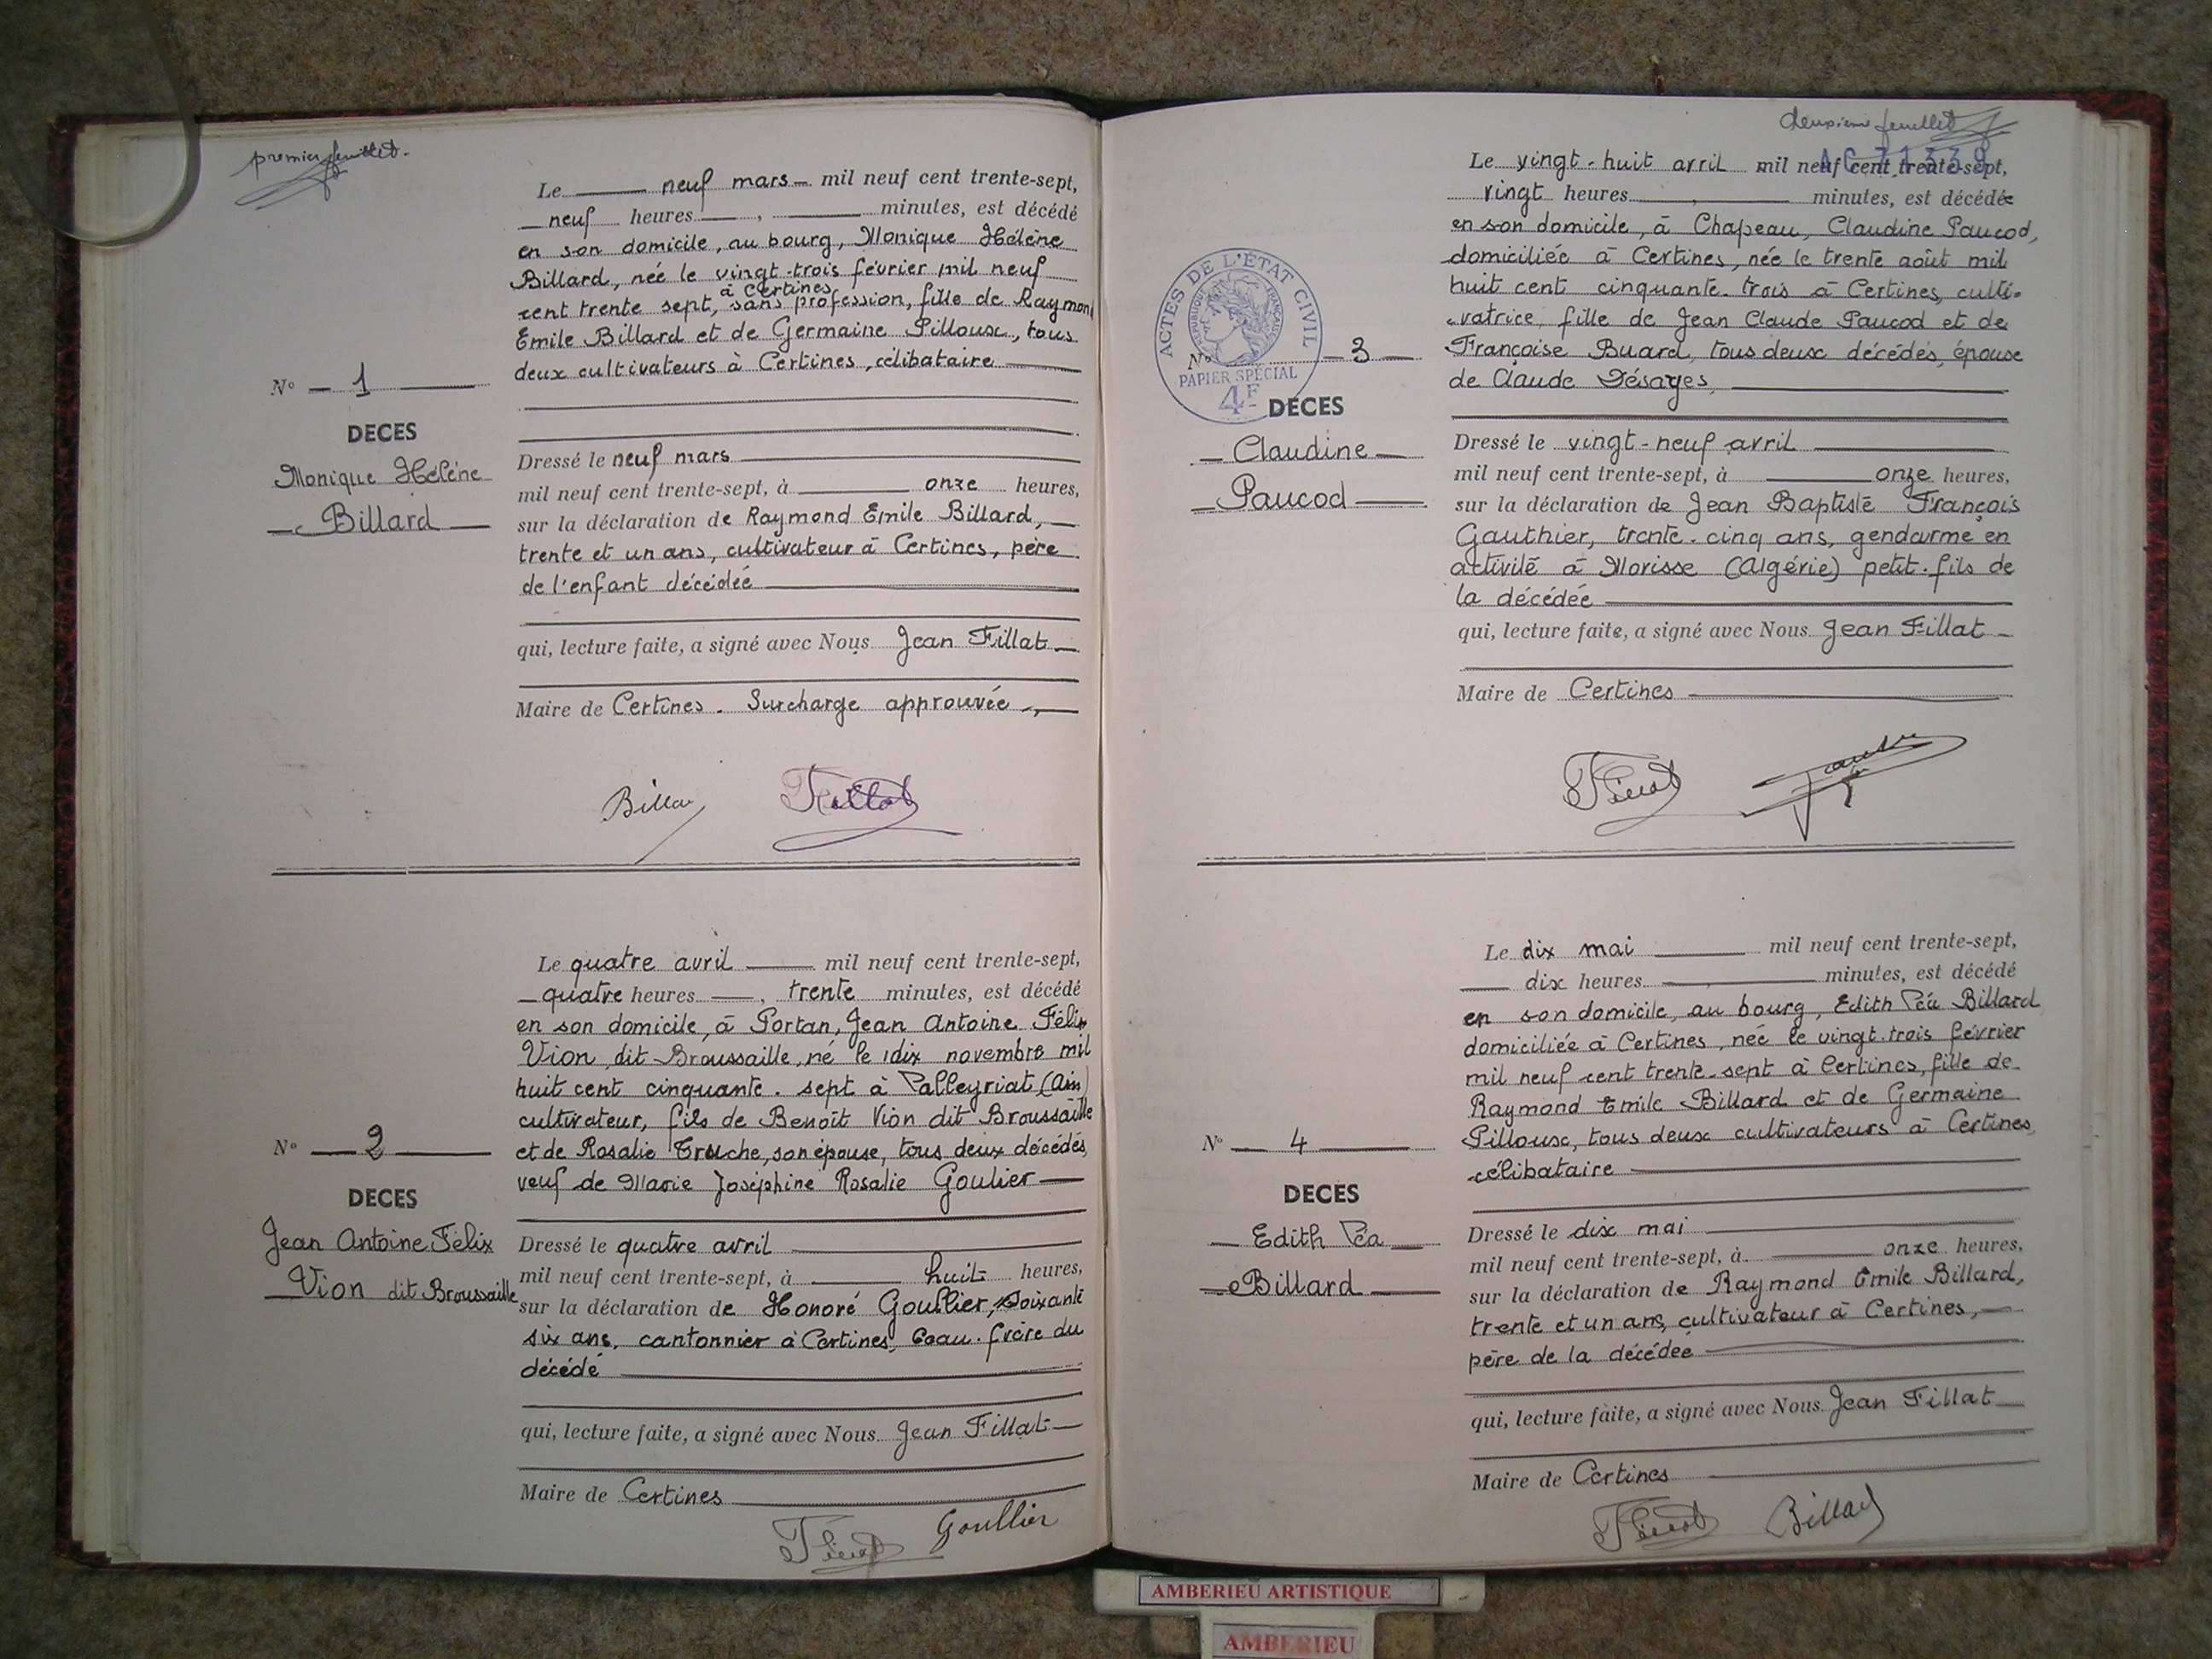 premier feuillet.
Le neuf mars mil neuf cent trente-sept,
neuf heures , minutes, est décédé
en son domicile, au bourg, Monique Hélène
Billard, née le vingt-trois février mil neuf
à Certines
cent trente sept, sans profession, fille de Raymond
Emile Billard et de Germaine Pilloux, tous
deux cultivateurs à Certines, célibataire
N° 1
DECES
Monique Hélène
Billard
Dressé le neuf mars
mil neuf cent trente-sept, à onze heures,
sur la déclaration de Raymond Emile Billard,
trente et un ans, cultivateur à Certines, père
de l'enfant décédée
qui, lecture faite, a signé avec Nous Jean Fillat
Maire de Certines. Surcharge approuvée
Billard Fillat
Le quatre avril mil neuf cent trente-sept,
quatre heures , trente minutes, est décédé
en son domicile, à Portan, Jean Antoine Félix
Vion dit Broussaille, né le dix novembre mil
huit cent cinquante-sept à Palleyriat (Ain)
cultivateur, fils de Benoît Vion dit Broussaille
et de Rosalie Truche, son épouse, tous deux décédés,
veuf de Marie Joséphine Rosalie Goulier
N° 2
DECES
Jean Antoine Félix
Vion dit Broussaille
Dressé le quatre avril
mil neuf cent trente-sept, à huit heures,
sur la déclaration de Honoré Goullier, soixante
six ans, cantonnier à Certines, beau-frère du
décédé
qui, lecture faite, a signé avec Nous Jean Fillat
Maire de Certines
Fillat Goullier
deuxième feuillet
Le vingt-huit avril mil neuf cent trente-sept,
vingt heures , minutes, est décédée
en son domicile, à Chapeau, Claudine Paucod,
domiciliée à Certines, née le trente août mil
huit cent cinquante-trois à Certines, culti-
vatrice, fille de Jean Claude Paucod et de
Françoise Buard, tous deux décédés, épouse
de Claude Désayes
ACTES DE L'ÉTAT CIVIL
RÉPUBLIQUE FRANÇAISE
PAPIER SPÉCIAL
4F
N° 3
DECES
Claudine
Paucod
Dressé le vingt-neuf avril
mil neuf cent trente-sept, à onze heures,
sur la déclaration de Jean Baptiste François
Gauthier, trente-cinq ans, gendarme en
activité à Morisse (Algérie) petit-fils de
la décédée
qui, lecture faite, a signé avec Nous Jean Fillat
Maire de Certines
Fillat
Le dix mai mil neuf cent trente-sept,
dix heures , minutes, est décédé
en son domicile, au bourg, Edith Péa Billard
domiciliée à Certines, née le vingt-trois février
mil neuf cent trente-sept à Certines, fille de
Raymond Emile Billard et de Germaine
Pilloux, tous deux cultivateurs à Certines,
célibataire
N° 4
DECES
Edith Péa
Billard
Dressé le dix mai
mil neuf cent trente-sept, à onze heures,
sur la déclaration de Raymond Emile Billard,
trente et un ans, cultivateur à Certines,
père de la décédée
qui, lecture faite, a signé avec Nous Jean Fillat
Maire de Certines
Fillat Billard
AMBERIEU ARTISTIQUE
AMBERIEU